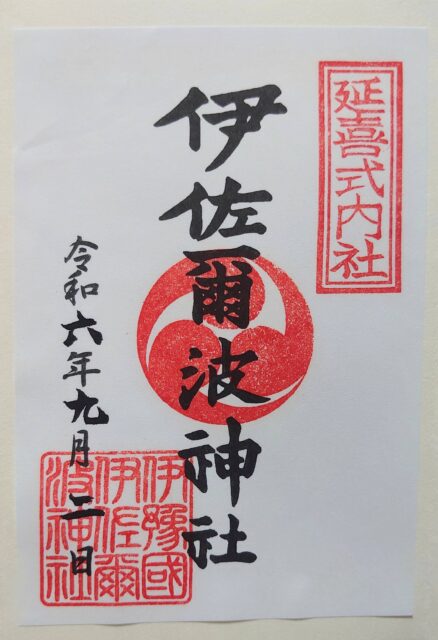 延喜式内社
伊佐爾波神社
令和六年九月二日
伊豫國
伊佐爾
波神社